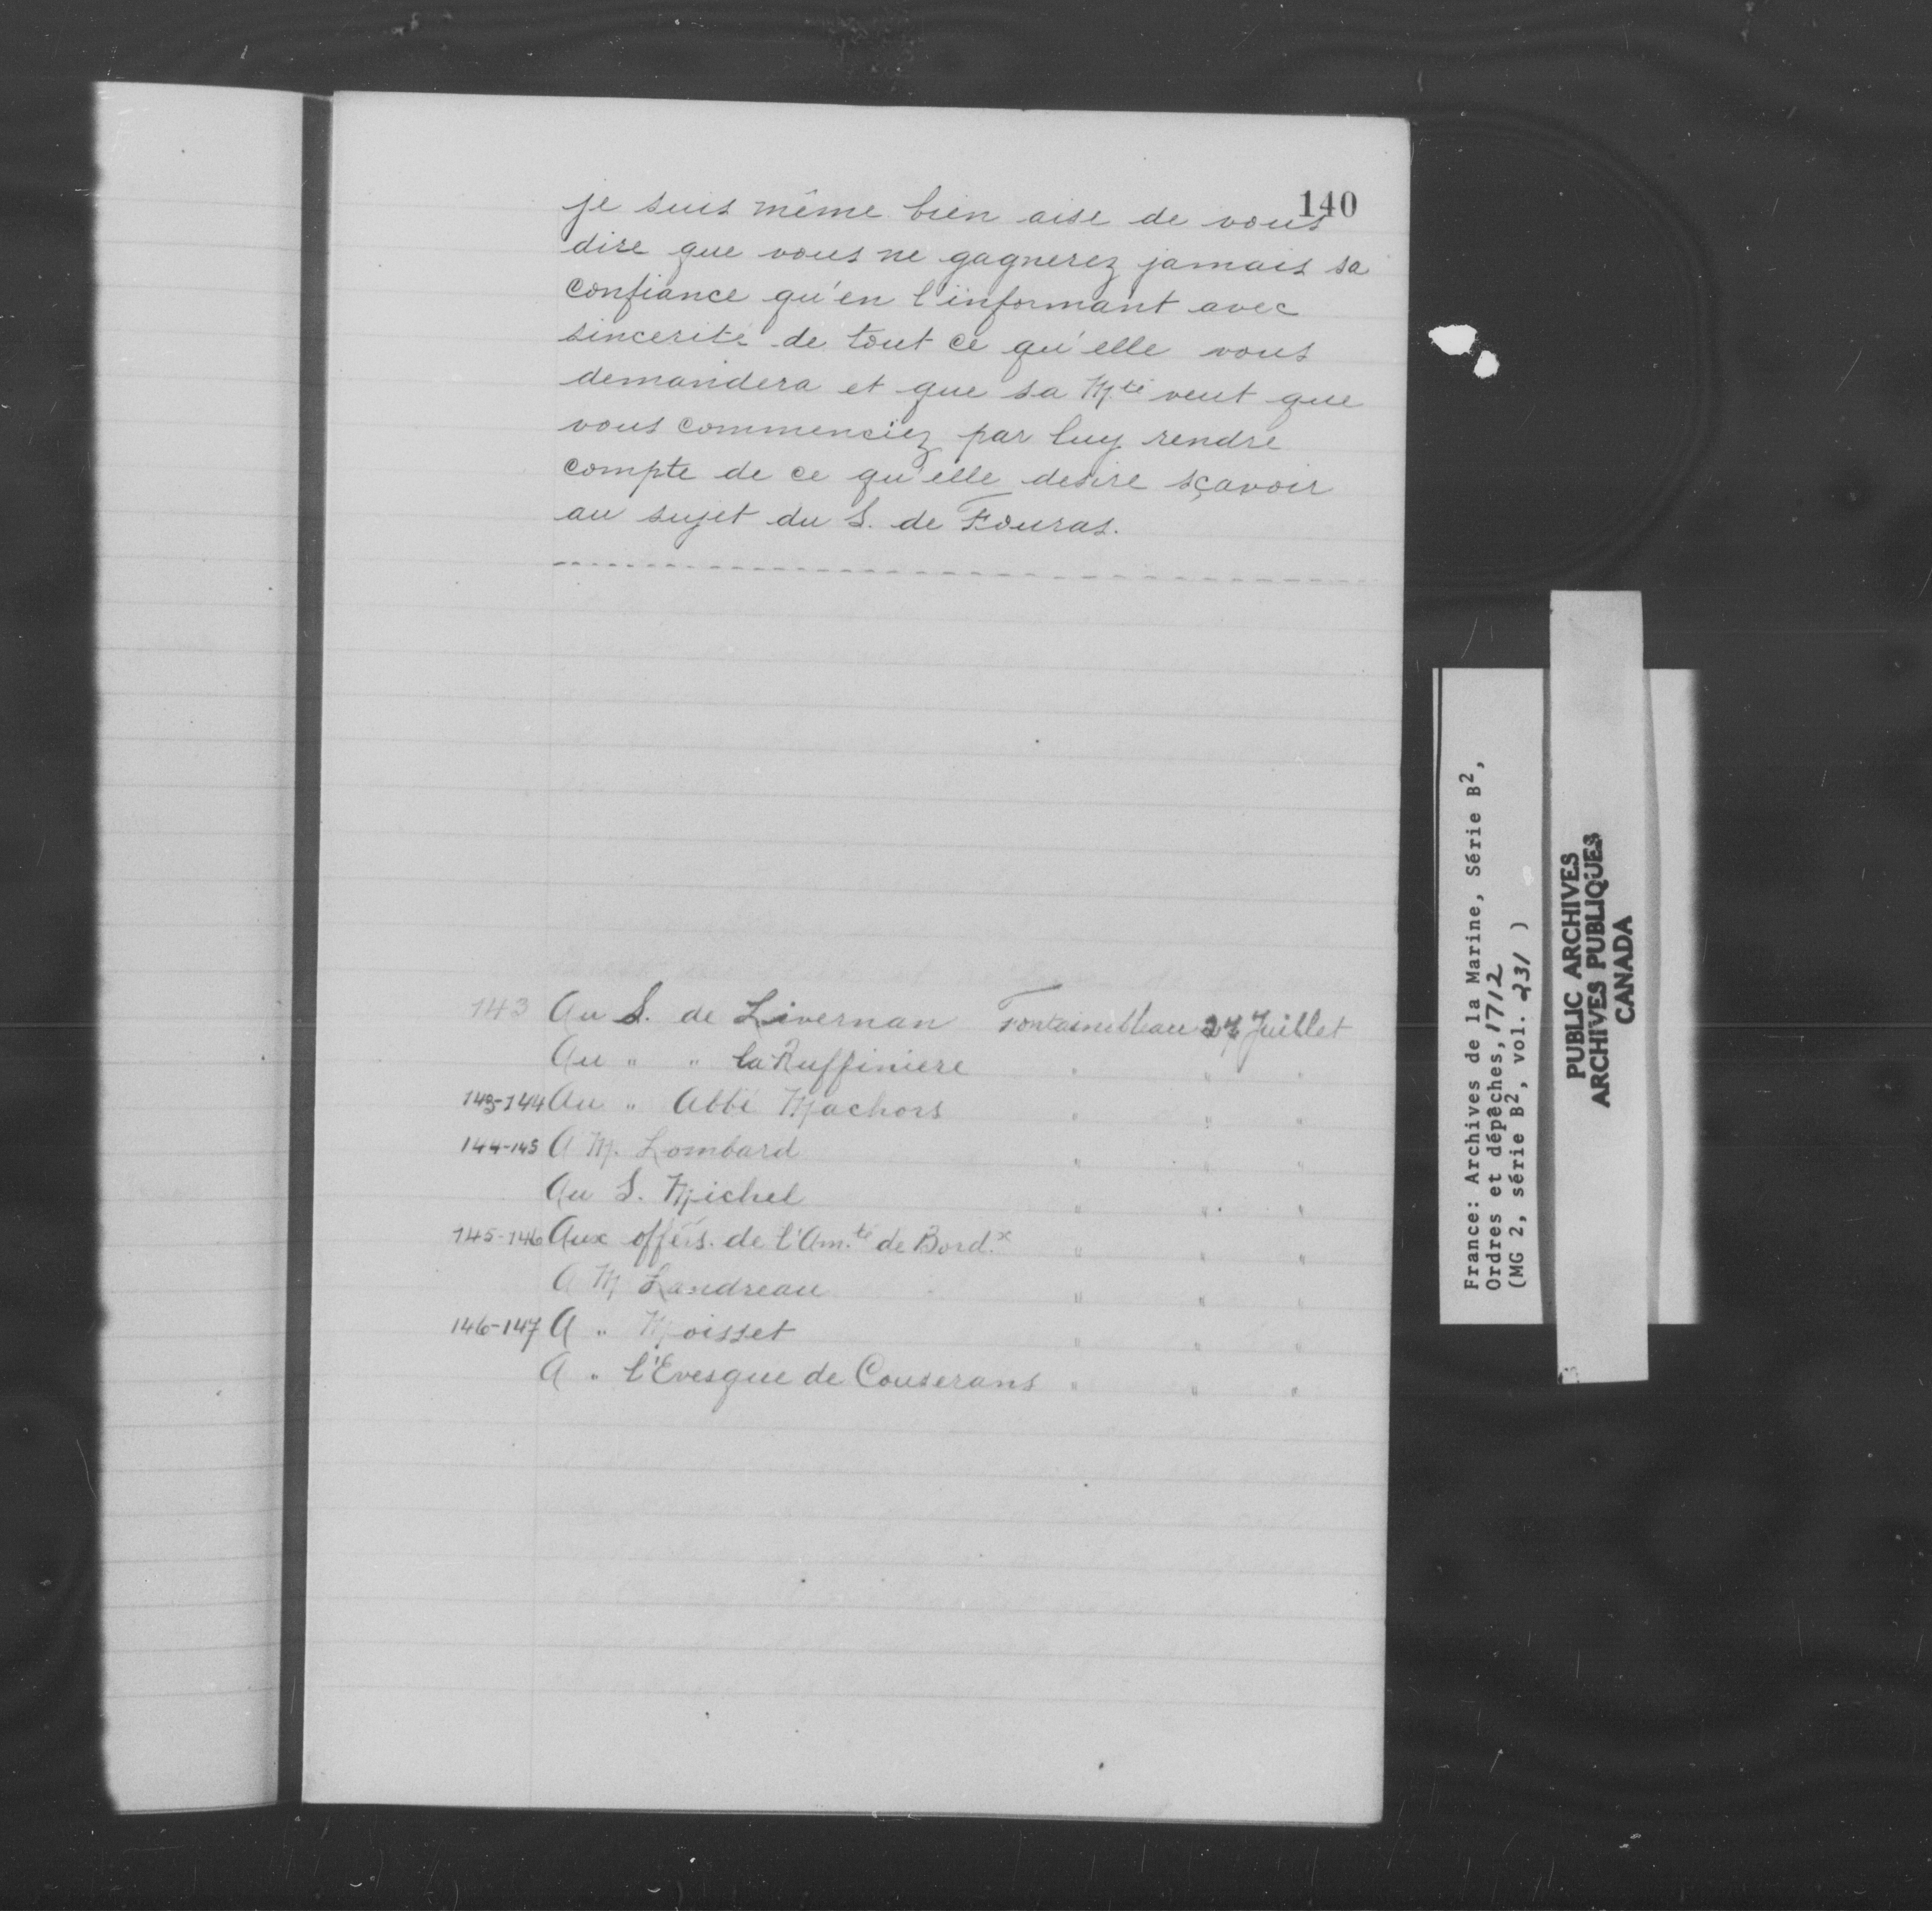 140
je suis même bien aise de vous
dire que vous ne gagnerez jamais sa
confiance qu'en l'informant avec
sincerité de tout ce qu'elle vous
demandera et que sa M.té veut que
vous commenciez par luy rendre
compte de ce qu'elle desire sçavoir
au sujet du S. de Fouras.
143 Au S. de Livernan Fontainebleau 27 Juillet
Au " " la Ruffiniere " " "
143-144 Au " Abbé Machors " " "
144-145 A M. Lombard " " "
Au S. Michel " " "
145-146 Aux offers. de l'Am.té de Bord.x " " "
A M Landreau " " "
146-147 A " Moisset " " "
A " l'Evesque de Couserans " " "
France: Archives de la Marine, Série B2,
Ordres et dépêches, 1712
(MG 2, série B2, vol. 231 )
PUBLIC ARCHIVES
ARCHIVES PUBLIQUES
CANADA